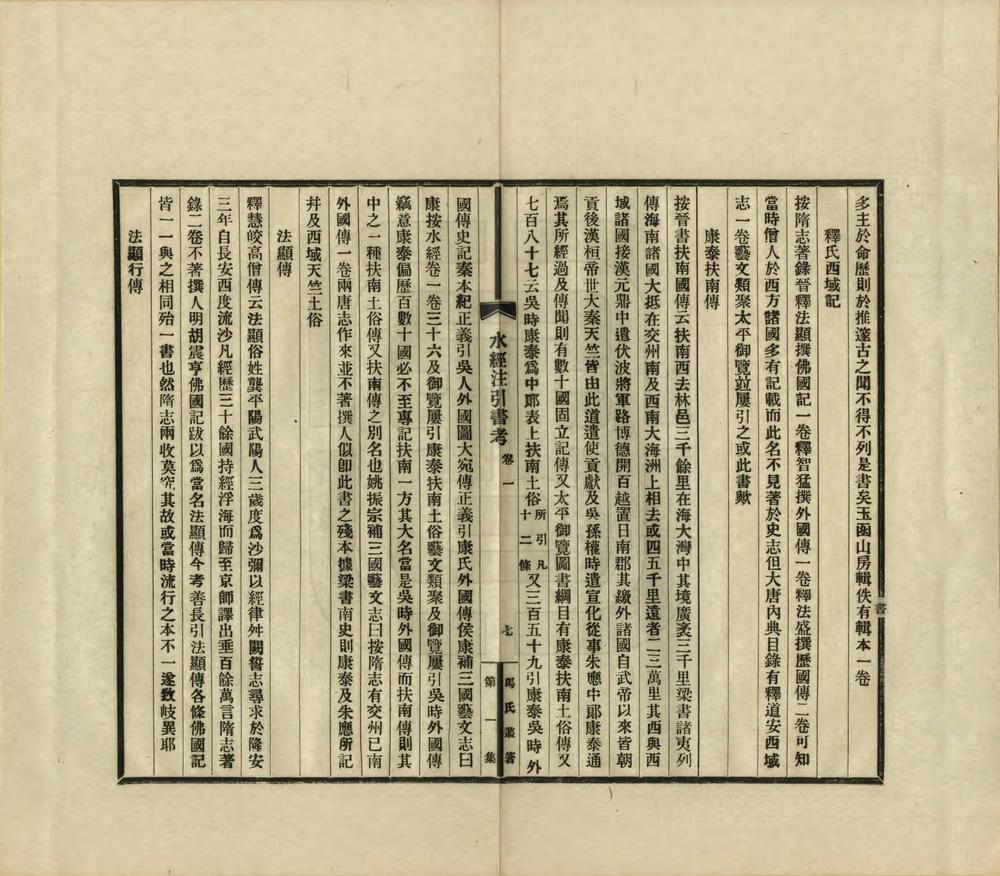 多主於命歷則於推邃古之聞不得不列是書矣玉函山房輯佚有輯本一卷
釋氏西域記
按隋志著錄晉釋法顯撰佛國記一卷釋智猛撰外國傳一卷釋法盛撰歷國傳二卷可知
當時僧人於西方諸國多有記載而此名不見著於史志但大唐內典目錄有釋道安西域
志一卷藝文類聚太平御覽竝屢引之或此書歟
康泰扶南傳
按晉書扶南國傳云扶南西去林邑三千餘里在海大灣中其境廣袤三千里梁書諸夷列
傳海南諸國大抵在交州南及西南大海洲上相去或四五千里遠者二三萬里其西與西
域諸國接漢元鼎中遣伏波將軍路博德開百越置日南郡其繳外諸國自武帝以來皆朝
貢後漢桓帝世大秦天竺皆由此道遣使貢獻及吳孫權時遣宣化從事朱應中郎康泰通
焉其所經過及傳聞則有數十國固立記傳又太平御覽圖書綱目有康泰扶南土俗傳又
七百八十七云吳時康泰爲中郎表上扶南土俗所引凡十二條又三百五十九引康泰吳時外
水經注引書考 卷一 七 馬氏叢著 第一集
國傳史記秦本紀正義引吳人外國圖大宛傳正義引康氏外國傳侯康補三國藝文志曰
康按水經卷一卷三十六及御覽屢引康泰扶南土俗藝文類聚及御覽屢引吳時外國傳
竊意康泰偏歷百數十國必不至專記扶南一方其大名當是吳時外國傳而扶南傳則其
中之一種扶南土俗傳又扶南傳之別名也姚振宗補三國藝文志曰按隋志有交州已南
外國傳一卷兩唐志作來並不著撰人似卽此書之殘本據梁書南史則康泰及朱應所記
幷及西域天竺土俗
法顯傳
釋慧皎高僧傳云法顯俗姓龔平陽武陽人三歲度爲沙彌以經律舛闕誓志尋求於隆安
三年自長安西度流沙凡經歷三十餘國持經浮海而歸至京師譯出垂百餘萬言隋志著
錄二卷不著撰人明胡震亨佛國記跋以爲當名法顯傳今考善長引法顯傳各條佛國記
皆一一與之相同殆一書也然隋志兩收莫究其故或當時流行之本不一遂致岐異耶
法顯行傳
書